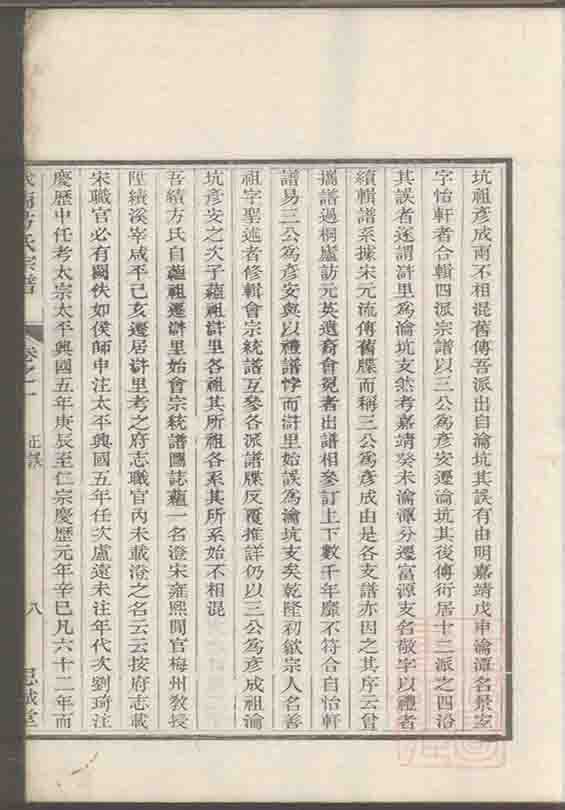 坑祖彥成兩不相混舊傳吾派出自淪坑其誤有由明嘉靖戊申淪潭名景
字怡軒者合輯四派宗譜以三公為彥安遷淪坑其後傳衍居十二派之四沿
其誤者遂謂滸里為淪坑支然考嘉靖癸未淪潭分遷富源支名敬字以禮者
續輯譜系據宋元流傳舊牒而稱三公為彥成由是各支譜亦因之其序云曾
攜譜過桐廬訪元英遺裔會冕者出譜相參訂上下數千年靡不符合自怡軒
譜易三公為彥安與以禮譜悖而滸里始誤為淪坑支矣乾隆初歙宗人名善
祖字聖述者修輯會宗統譜互參各派譜牒反覆推詳仍以三公為彥成祖淪
坑彥安之次子蘊祖滸里各祖其所祖各系其所系始不相混
吾績方氏自蘊祖遷滸里始會宗統譜圖誌蘊一名澄宋雍熙間官梅州教授
陞績溪宰咸平己亥遷居滸里考之府志職官內未載澄之名云云按府志載
宋職官必有闕佚如僕師申注太平興國五年任次盧遠未注年代次劉琦注
慶歷中任考太宗太平興國五年庚辰至仁宗慶歷元年辛巳凡六十二年而
方氏宗譜
卷之一
正誤
八
思誠堂